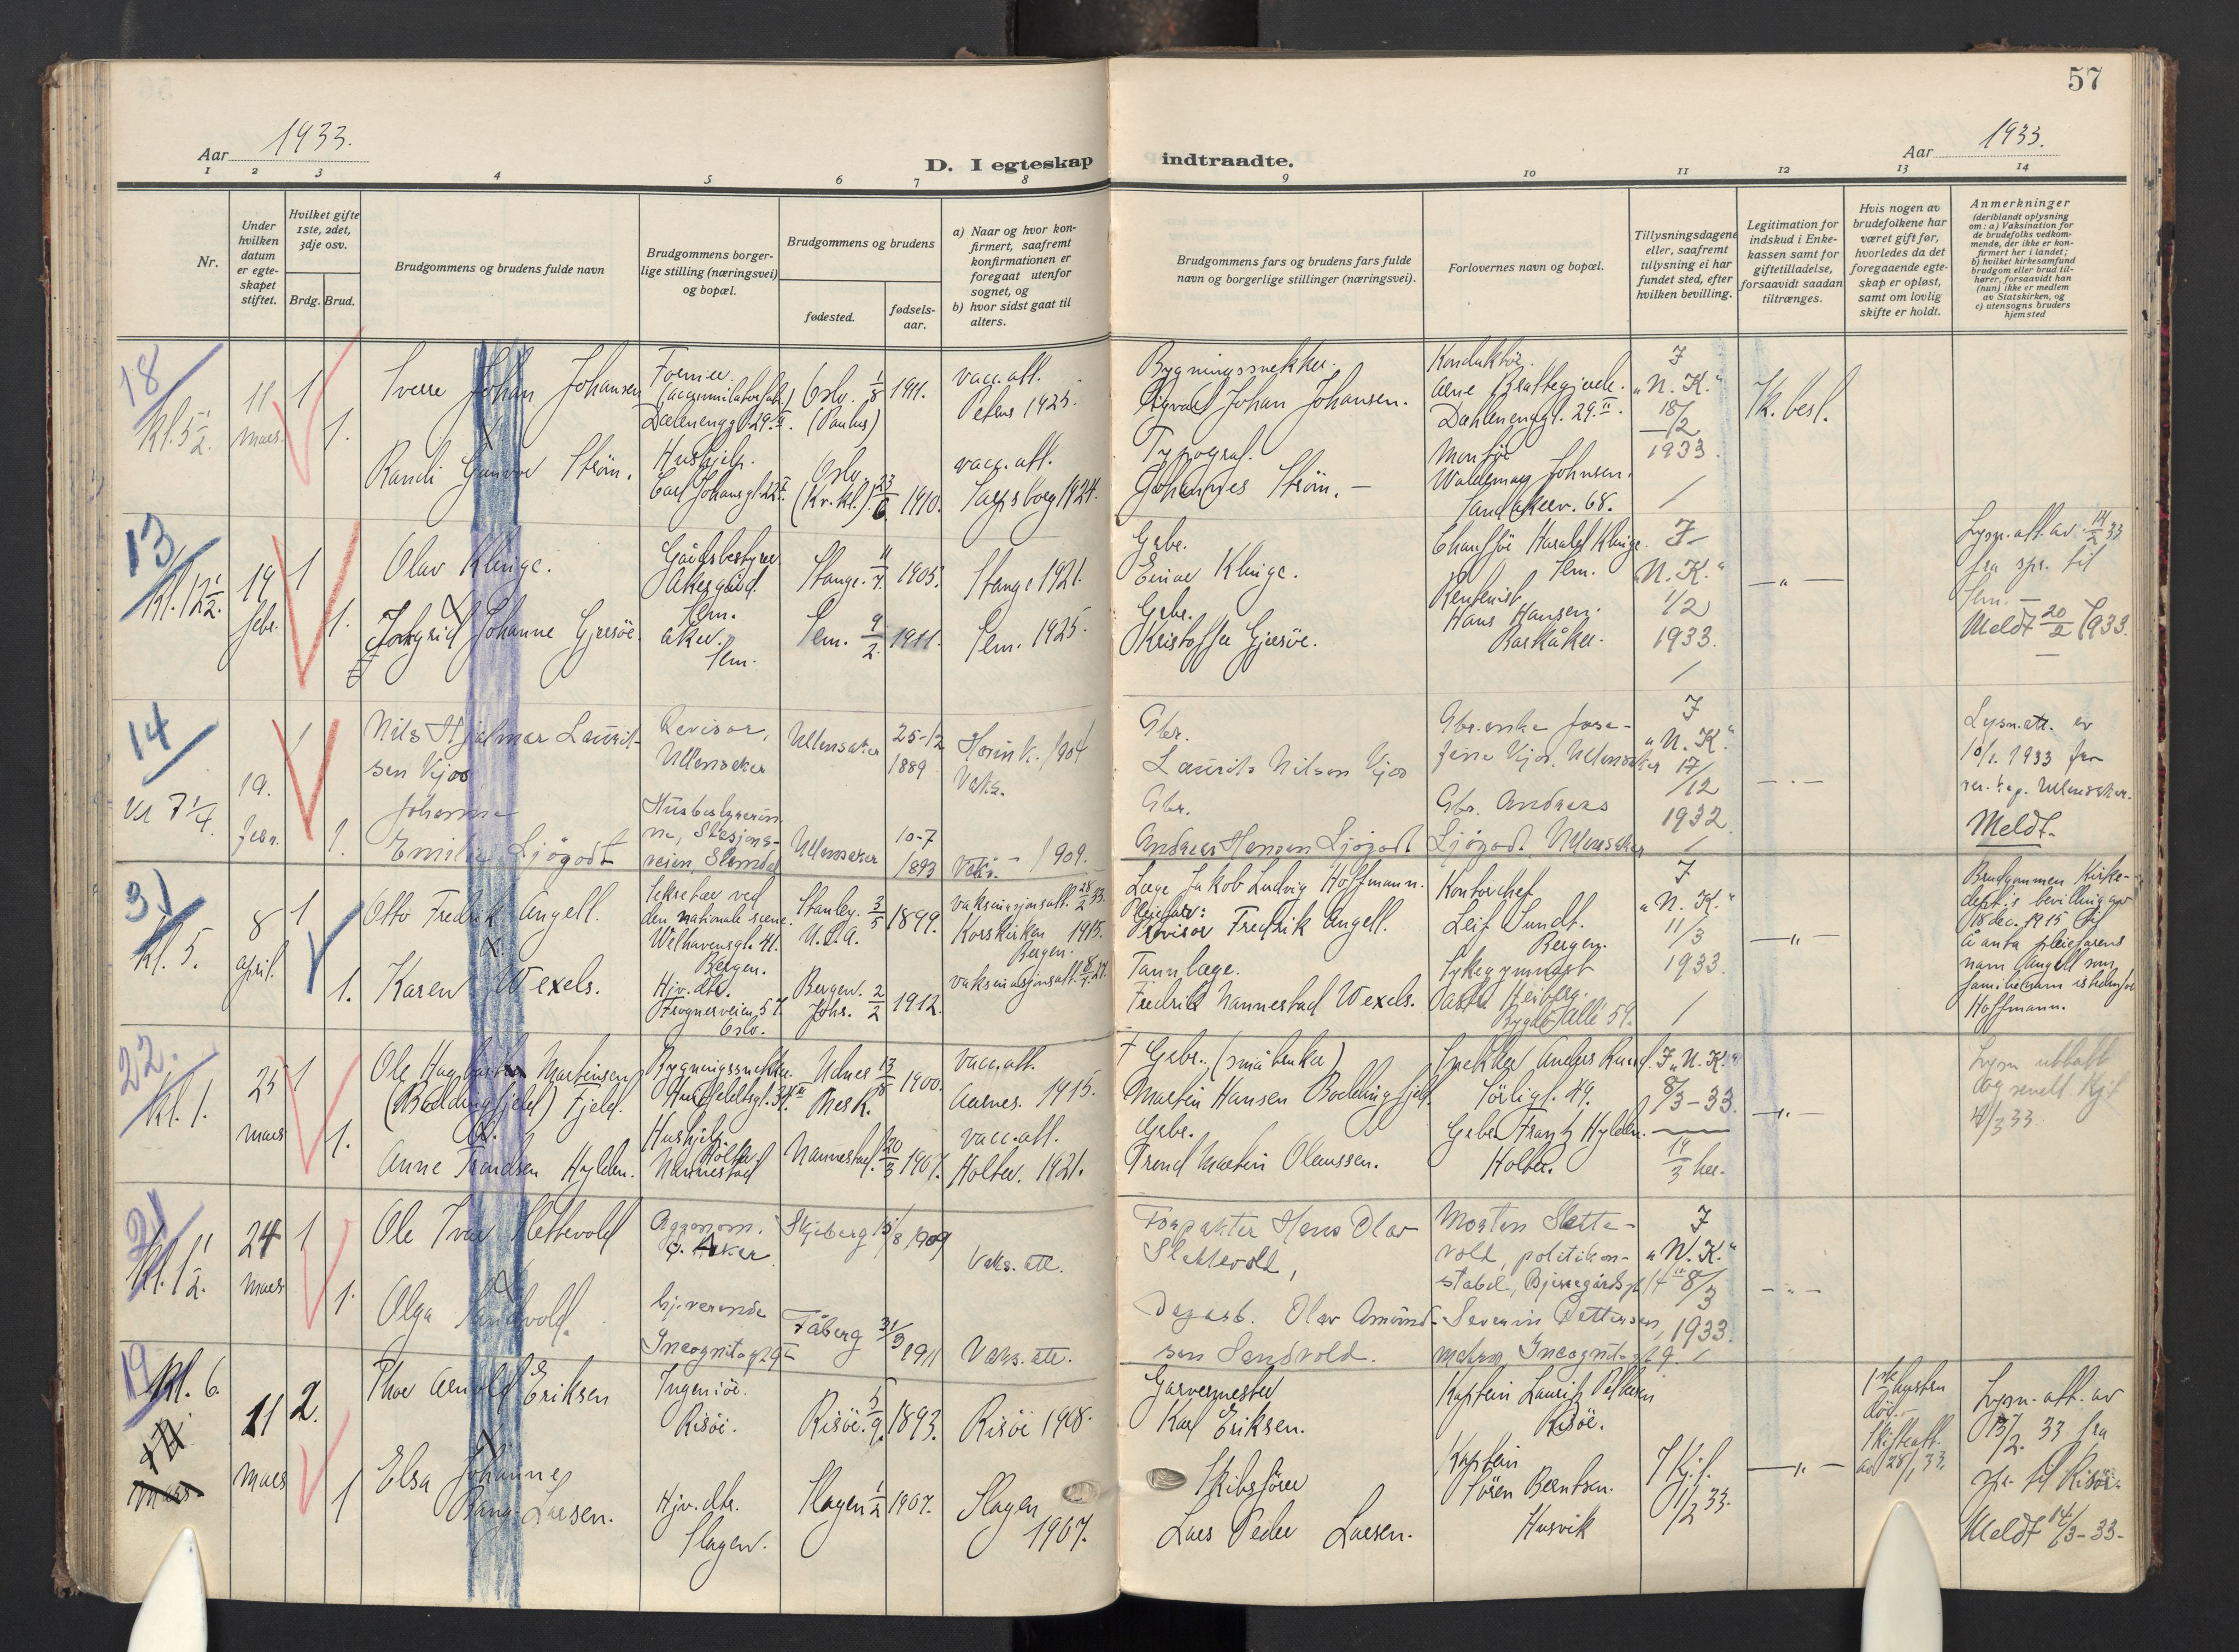 57
Aar 1933.
D. I egteskap indtraadte.
Aar 1933.
1 2 3 4 5 6 7 8 9 10 11 12 13 14
Nr.
Under hvilken datum er egteskapet stiftet.
Hvilket gifte 1ste, 2det, 3dje osv.
Brdg. Brud.
Brudgommens og brudens fulde navn
Brudgommens borgerlige stilling (næringsvei) og bopæl.
Brudgommens og brudens
fødested.
fødselsaar.
a) Naar og hvor konfirmert, saafremt konfirmationen er foregaat utenfor sognet, og
b) hvor sidst gaat til alters.
Brudgommens fars og brudens fars fulde navn og borgerlige stillinger (næringsvei).
Forlovernes navn og bopæl.
Tillysningsdagene eller, saafremt tillysning ei har fundet sted, efter hvilken bevilling.
Legitimation for indskud i Enkekassen samt for giftetilladelse, forsaavidt saadan tiltrænges.
Hvis nogen av brudefolkene har været gift før, hvorledes da det foregaaende egteskap er opløst, samt om lovlig skifte er holdt.
Anmerkninger
(deriblandt oplysning om: a) Vaksination for de brudefolks vedkommende, der ikke er konfirmert her i landet; b) hvilket kirkesamfund brudgom eller brud tilhører, forsaavidt han (hun) ikke er medlem av Statskirken, og c) utensogns bruders hjemsted
18
Kl. 5 1/2.
11 mars.
1
1.
Sverre Johan Johansen
Former.
Dælenenggt. 29. II.
Oslo. 1/8 1911.
(Paulus)
vacc. att.
Petrus 1925.
Bygningssnekker.
Sigvart Johan Johansen.
Konduktør.
Arne Brattegjerde.
Dahlenenggt. 29. II.
I
"N. K."
18/2
1933.
Randi Gunvor Strøm.
Hushjelp.
Carl Johansgt. 22.
Oslo.
(Kr. kl.) 23/6 1910.
vacc. att.
Sarpsborg 1924.
Typograf.
Johannes Strøm. —
Montør
Waldemar Johnsen.
Sandakerv. 68.
13
Kl. 12 1/2.
19 febr.
1
1.
Olav Klinge.
Gårdsbestyrer
Akergård.
Sem.
Stange. 11/7 1905.
Stange 1921.
Grbr.
Einar Klinge.
Chauffør Harald Klinge.
Sem.
I
"N. K."
1/2
1933.
— " —
Lysn. att. av 14/2 33
fra spr. til
Sem. —
Meldt 20/2 1933.
Ingrid Johanne Gjersøe.
Aker.
Sem.
Sem. 9/2 1911.
Sem. 1925.
Grbr.
Kristoffer Gjersøe.
Rentenist
Hans Hansen.
Barkåker.
14
Kl 7 1/4.
19. febr.
1
1.
Nils Hjalmar Laurit-
sen Kjos
Revisor,
Ullensaker
Ullensaker
25-12
1889
Hovin k. 1904
Vaks.
Gbr.
Laurits Nilsen Kjos
Gbr.enke Jose-
fine Kjos, Ullensaker
I
"N. K."
17/12
1932
Lysn.att. av
10/1. 1933 fra
Ullensaker.
Meldt.
Johanne
Emilie Ljøgodt
Husbestyrerin-
ne, Stasjons-
veien, Slemdal
Ullensaker
10-7
1893
Vaks. — 1909.
Gbr.
Andreas Hansen Ljøgodt
Gbr. Andreas
Ljøgodt, Ullensaker
31
Kl. 5.
8 april.
1
1.
Otto Fredrik Angell.
Sekretær ved
den nationale scene.
Welhavensgt. 41.
Bergen.
Stanley. 3/5 1899.
U.S.A.
vaksinasjonsatt. 28/2 33.
Korskirken 1915.
Bergen.
Læge Jakob Ludvig Hoffmann.
Pleiefar:
Revisor Fredrik Angell.
Kontorchef
Leif Sundt.
Bergen.
I
"N. K."
11/3
1933.
— " —
Brudgommen Kirke-
dept.s bevilling av
18 dec. 1915 til
å anta pleiefarens
navn Angell som
familienavn istedenfor
Hoffmann.
Karen Wexels.
Hjv. dtr.
Frognerveien 57.
Oslo.
Bergen. 2/2 1912.
Johs.
vaksinasjonsatt.
Tannlæge.
Fredrik Nannestad Wexels.
Sykegymnast
Heiberg.
Bygdø Allé 59.
22.
Kl. 1.
25 mars
1
1.
Ole Hagbart Martinsen
(Boddingfjeld) Fjeld.
Bygningssnekker.
Udnes 13/ 1900.
Nesk.
Vacc. att.
Aarnes. 1915.
Grbr. (småbruker)
Martin Hansen Boddingfjeld.
Snekker Anders Rund.
Sørligt. 49.
I "N. K."
8/3-33.
— " —
Lysn
4/3 33.
Anne Trondsen Hylden.
Hushjelp
Holter.
Nannestad
Nannestad. 20/3 1907.
vacc. att.
Holter. 1921.
Grbr.
Trond Martin Olaussen.
Grbr. Frantz Hylden.
Holter.
11/3 her.
21
Kl. 1 1/2.
24 mars
1
1.
Ole Ivar Slettevold
Agronom.
Aker
Skjeberg 15/8 1909
Vaks. att.
Forpakter Hans Olav
Slettevold,
Morten Slette-
vold, politikon-
stabel, Bjerregårdsgt 14
I
"N. K."
8/3
1933.
Olga Sandvold.
hjemværende
Incognitogt 9
Fåberg 31/3 1911
Vaks. att.
Dagarb. Olav Amund-
sen Sandvold.
Severin Pettersen,
Incognitogt 9.
19
Kl. 6.
11 mars
2.
1
Thor Arnold Eriksen
Ingeniør.
Risør.
Risør. 5/9. 1893.
Risør 1908.
Garvermester
Karl Eriksen.
Kaptein Lauritz Pettersen
Risør.
I Kgl.
11/2 33.
— " —
1ste hustru
død.
Skifteatt.
av 28/1 33.
Lysn. att. av
13/2. 33 fra
spr. til Risør.
Meldt 14/3-33.
Elsa Johanne
Bang-Larsen.
Hjv. dtr.
Slagen.
Slagen 1/2 1907.
Slagen
1907.
Skibsfører
Lars Peder Larsen.
Kaptein
Søren Berntsen.
Husvik